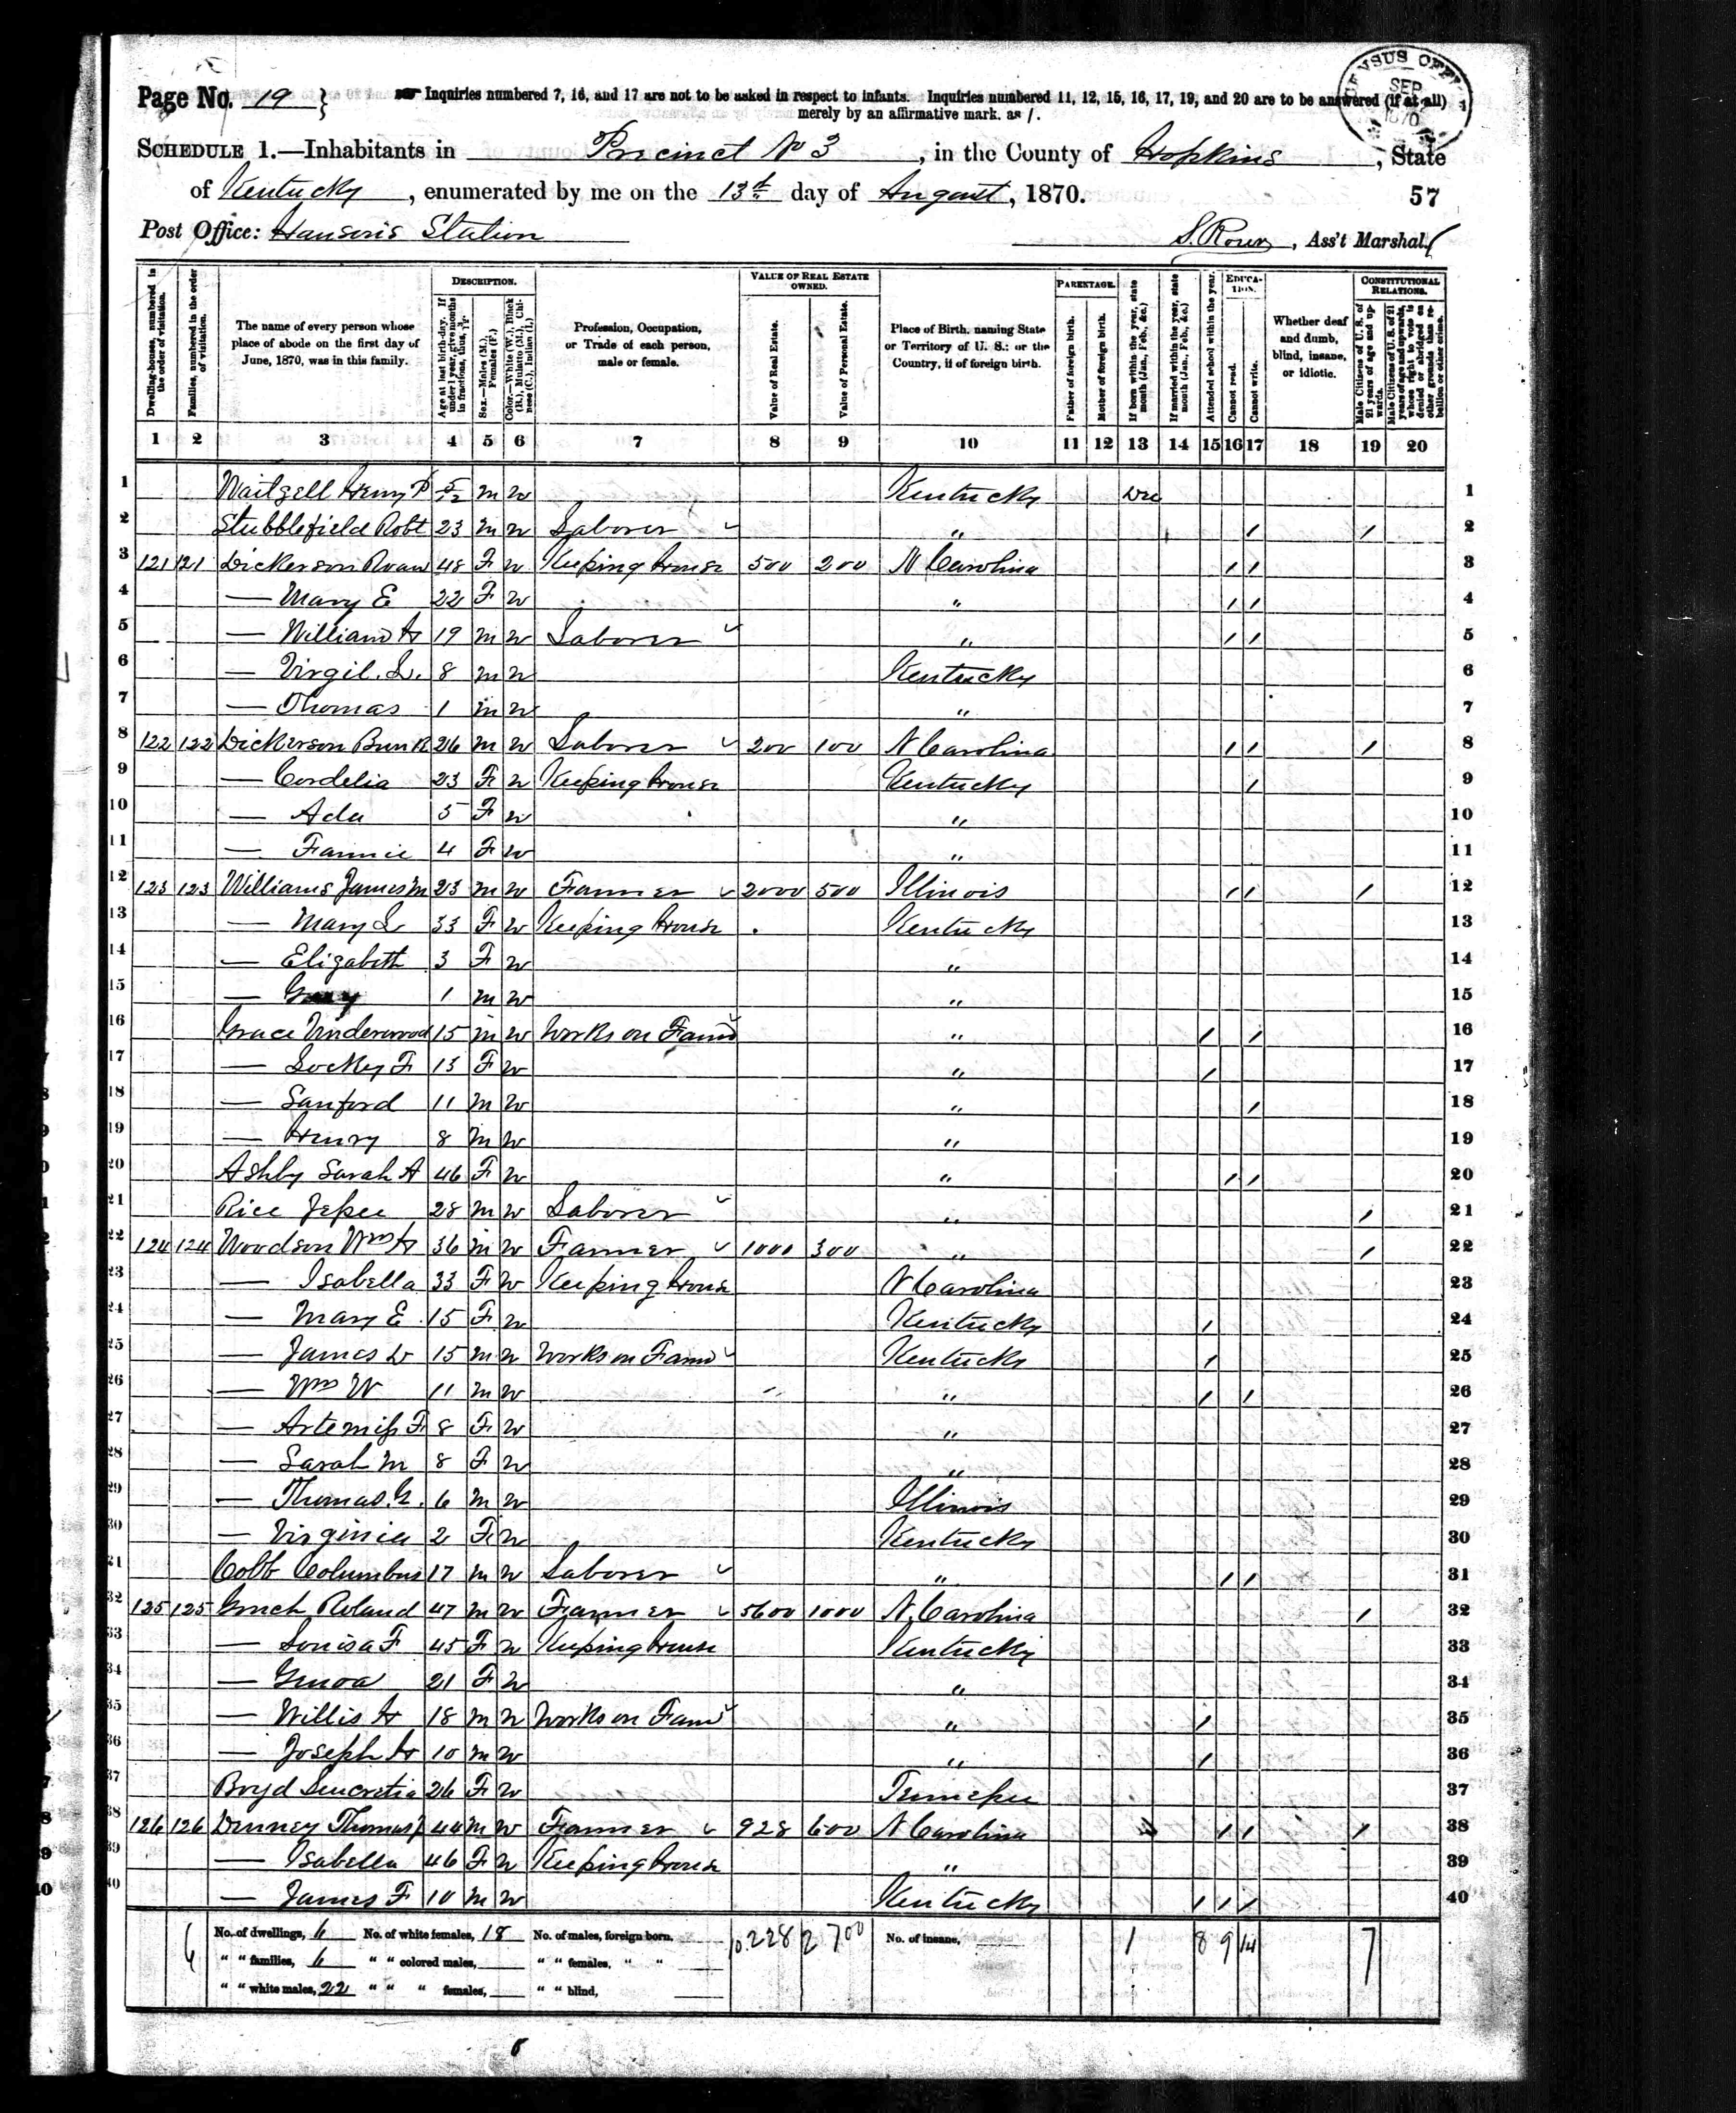 Page No. 19
Inquiries numbered 7, 16, and 17 are not to be asked in respect to infants. Inquiries numbered 11, 12, 15, 16, 17, 19, and 20 are to be answered (if at all)
merely by an affirmative mark. as /.
CENSUS OFFI
SEP
1870
SCHEDULE 1.—Inhabitants in Precinct No 3, in the County of Hopkins, State
of Kentucky, enumerated by me on the 13th day of August, 1870.
57
Post Office: Hanson's Station
Ass't Marshal.
Dwelling-houses, numbered in the order of visitation.
Families, numbered in the order of visitation.
The name of every person whose place of abode on the first day of June, 1870, was in this family.
DESCRIPTION.
Age at last birth-day. If under 1 year, give months in fractions, thus, 3/12.
Sex.—Males (M.), Females (F.)
Color.—White (W.), Black (B.), Mulatto (M.), Chinese (C.), Indian (I.)
Profession, Occupation, or Trade of each person, male or female.
VALUE OF REAL ESTATE OWNED.
Value of Real Estate.
Value of Personal Estate.
Place of Birth, naming State or Territory of U. S.; or the Country, if of foreign birth.
PARENTAGE.
Father of foreign birth.
Mother of foreign birth.
If born within the year, state month (Jan., Feb., &c.)
If married within the year, state month (Jan., Feb., &c.)
Attended school within the year.
EDUCATION.
Cannot read.
Cannot write.
Whether deaf and dumb, blind, insane, or idiotic.
CONSTITUTIONAL RELATIONS.
Male Citizens of U. S. of 21 years of age and upwards.
Male Citizens of U. S. of 21 years of age and upwards, whose right to vote is denied or abridged on other grounds than rebellion or other crime.
1 2 3 4 5 6 7 8 9 10 11 12 13 14 15 16 17 18 19 20
1 Henry P 5/12 M W Kentucky Dec 1
2 Stubblefield Robt 23 M W Laborer " / / 2
3 121 121 Dickerson 48 F W Keeping house 500 200 N Carolina / / 3
4 — Mary E 22 F W " / / 4
5 — William H 19 M W Laborer " / / 5
6 — Virgil. L. 8 M W Kentucky 6
7 — Thomas 1 M W " 7
8 122 122 Dickerson 26 M W Laborer 200 100 N Carolina / / / 8
9 — Cordelia 23 F W Keeping house Kentucky / 9
10 — Ada 5 F W " 10
11 — Fannie 4 F W " 11
12 123 123 Williams James M 23 M W Farmer 2000 500 Illinois / / / 12
13 — Mary L 33 F W Keeping House Kentucky 13
14 — Elizabeth 3 F W " 14
15 — 1 M W " 15
16 Grace Underwood 15 M W Works on Farm " / / 16
17 — Lockey F 13 F W " / 17
18 — Sanford 11 M W " / 18
19 — Henry 8 M W " 19
20 Ashby Sarah A 46 F W " / / 20
21 Rice Jesse 28 M W Laborer " / 21
22 124 124 Woodson Wm H 36 M W Farmer 1000 300 " / 22
23 — Isabella 33 F W Keeping House N Carolina 23
24 — Mary E 15 F W Kentucky / 24
25 — James W 15 M W Works on Farm Kentucky / 25
26 — Wm W 11 M W " / / 26
27 — Artemiss F 8 F W " 27
28 — Sarah M 8 F W " 28
29 — Thomas G. 6 M W Illinois 29
30 — Virginia 2 F W Kentucky 30
31 Cobb Columbus 17 M W Laborer " / / 31
32 125 125 Roland 47 M W Farmer 5600 1000 N. Carolina / 32
33 — Louisa F 45 F W Keeping house Kentucky 33
34 — 21 F W " 34
35 — Willis H 18 M W Works on Farm " / 35
36 — Joseph H 10 M W " / 36
37 Boyd Lucretia 26 F W Tennessee 37
38 126 126 Denney Thomas J 44 M W Farmer 928 600 N Carolina / / / 38
39 — Isabella 46 F W Keeping house " 39
40 — James F 10 M W Kentucky / / / 40
No. of dwellings, 6 No. of white females, 18 No. of males, foreign born, 10.228 2700 No. of insane, 1 8 9 14 7
" " families, 6 " " colored males, " " females, " "
" " white males, 22 " " " females, " " blind,